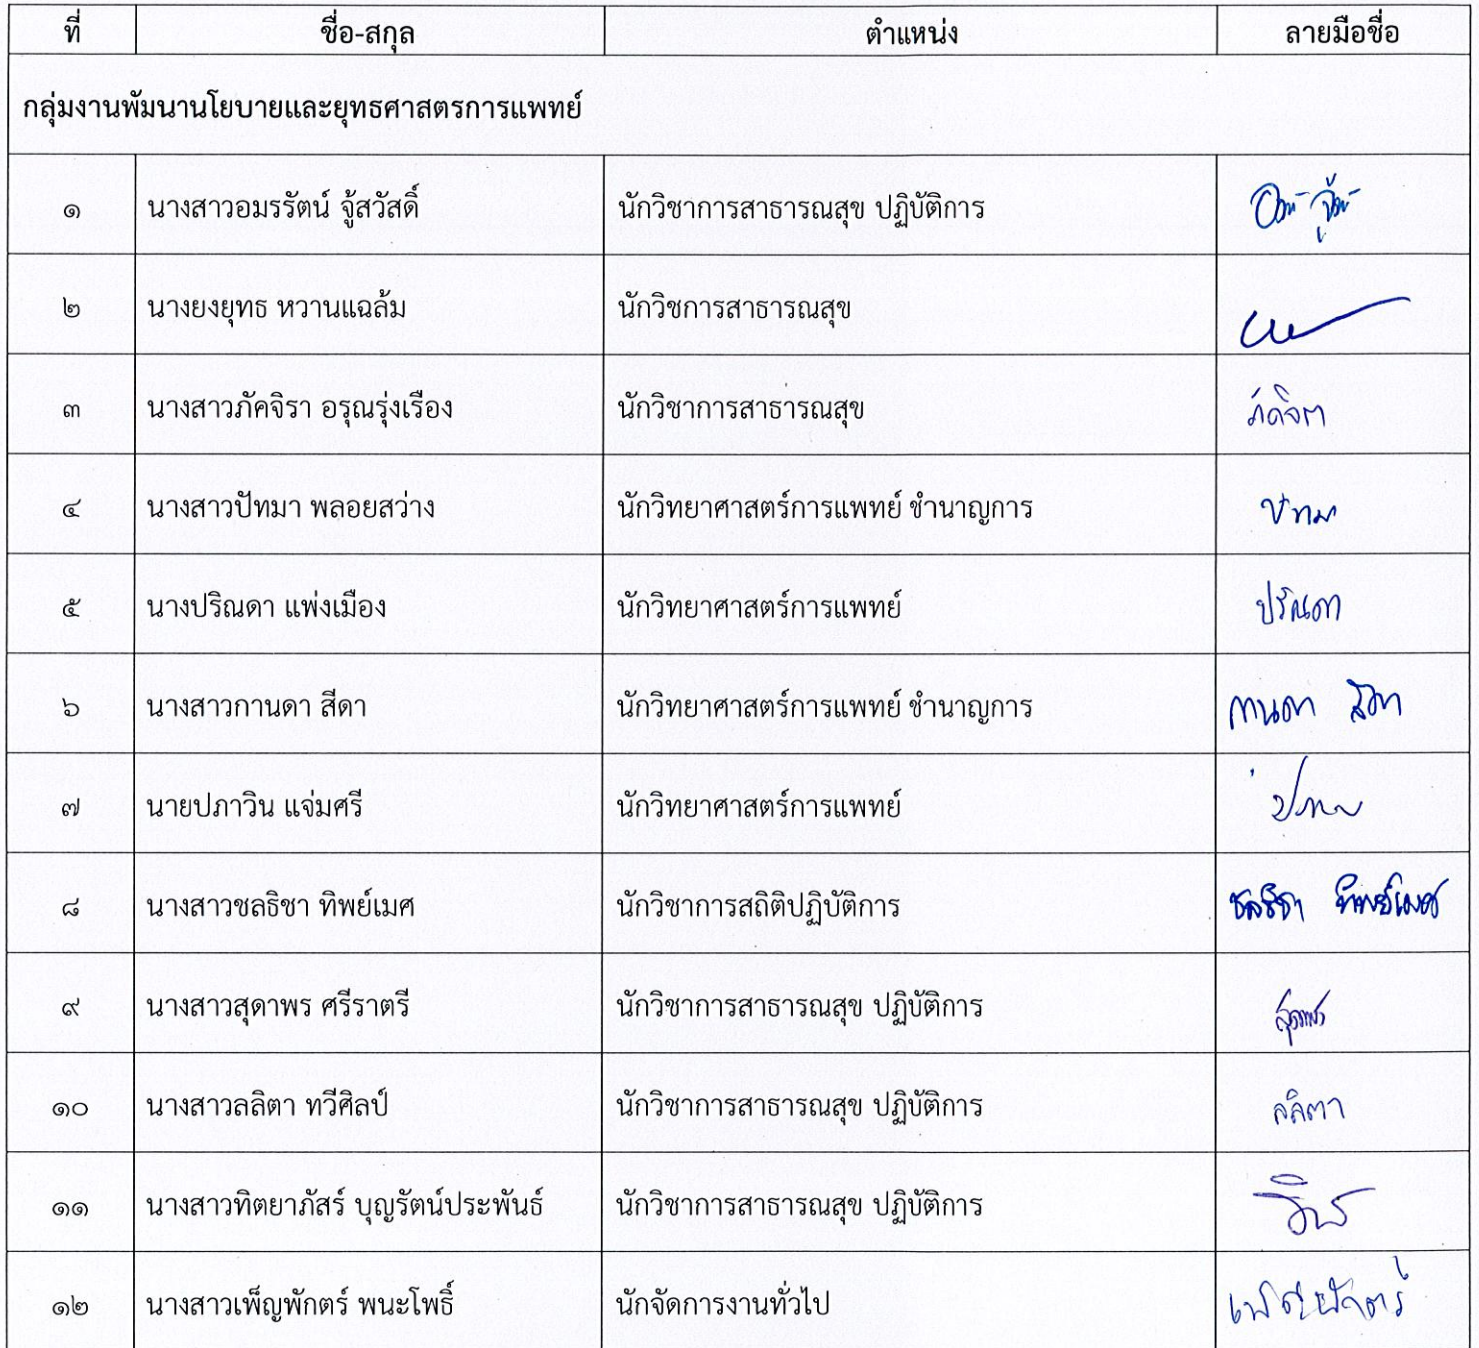 ที่ ชื่อ-สกุล ตำแหน่ง ลายมือชื่อ
กลุ่มงานพัมนานโยบายและยุทธศาสตรการแพทย์
๑ นางสาวอมรรัตน์ จู้สวัสดิ์ นักวิชาการสาธารณสุข ปฏิบัติการ
๒ นางยงยุทธ หวานแฉล้ม นักวิชการสาธารณสุข
๓ นางสาวภัคจิรา อรุณรุ่งเรือง นักวิชาการสาธารณสุข ภัคจิรา
๔ นางสาวปัทมา พลอยสว่าง นักวิทยาศาสตร์การแพทย์ ชำนาญการ ปัทมา
๕ นางปริณดา แพ่งเมือง นักวิทยาศาสตร์การแพทย์ ปริณดา
๖ นางสาวกานดา สีดา นักวิทยาศาสตร์การแพทย์ ชำนาญการ กานดา สีดา
๗ นายปภาวิน แจ่มศรี นักวิทยาศาสตร์การแพทย์
๘ นางสาวชลธิชา ทิพย์เมศ นักวิชาการสถิติปฏิบัติการ ชลธิชา ทิพย์เมศ
๙ นางสาวสุดาพร ศรีราตรี นักวิชาการสาธารณสุข ปฏิบัติการ สุดาพร
๑๐ นางสาวลลิตา ทวีศิลป์ นักวิชาการสาธารณสุข ปฏิบัติการ ลลิตา
๑๑ นางสาวทิตยาภัสร์ บุญรัตน์ประพันธ์ นักวิชาการสาธารณสุข ปฏิบัติการ
๑๒ นางสาวเพ็ญพักตร์ พนะโพธิ์ นักจัดการงานทั่วไป เพ็ญพักตร์